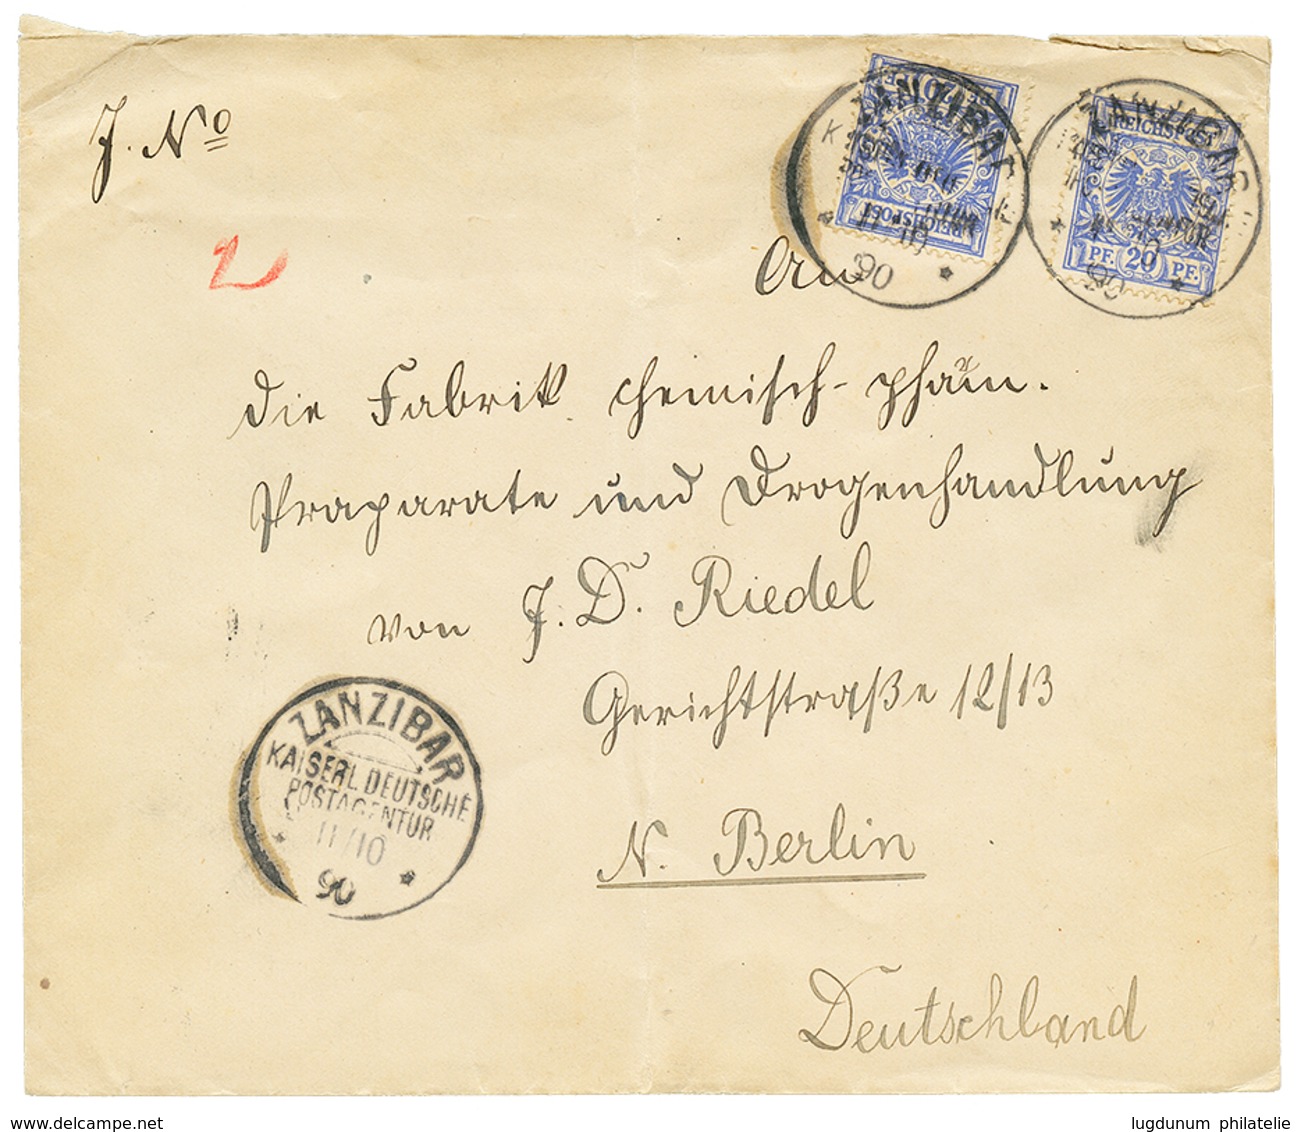 J. No
2
ZANZIBAR
11/10
90
REICHSPOST
ZANZIBAR
REICHSPOST
PF. 20 PF.
90
An
die Fabrik chemisch-pharm.
Praparate und Drogenhandlung
von J. D. Riedel
Gerichtstraße 12/13
N. Berlin
Deutschland
ZANZIBAR
KAISERL. DEUTSCHE
POSTAGENTUR
11/10
90
www.delcampe.net
lugdunum philatelie